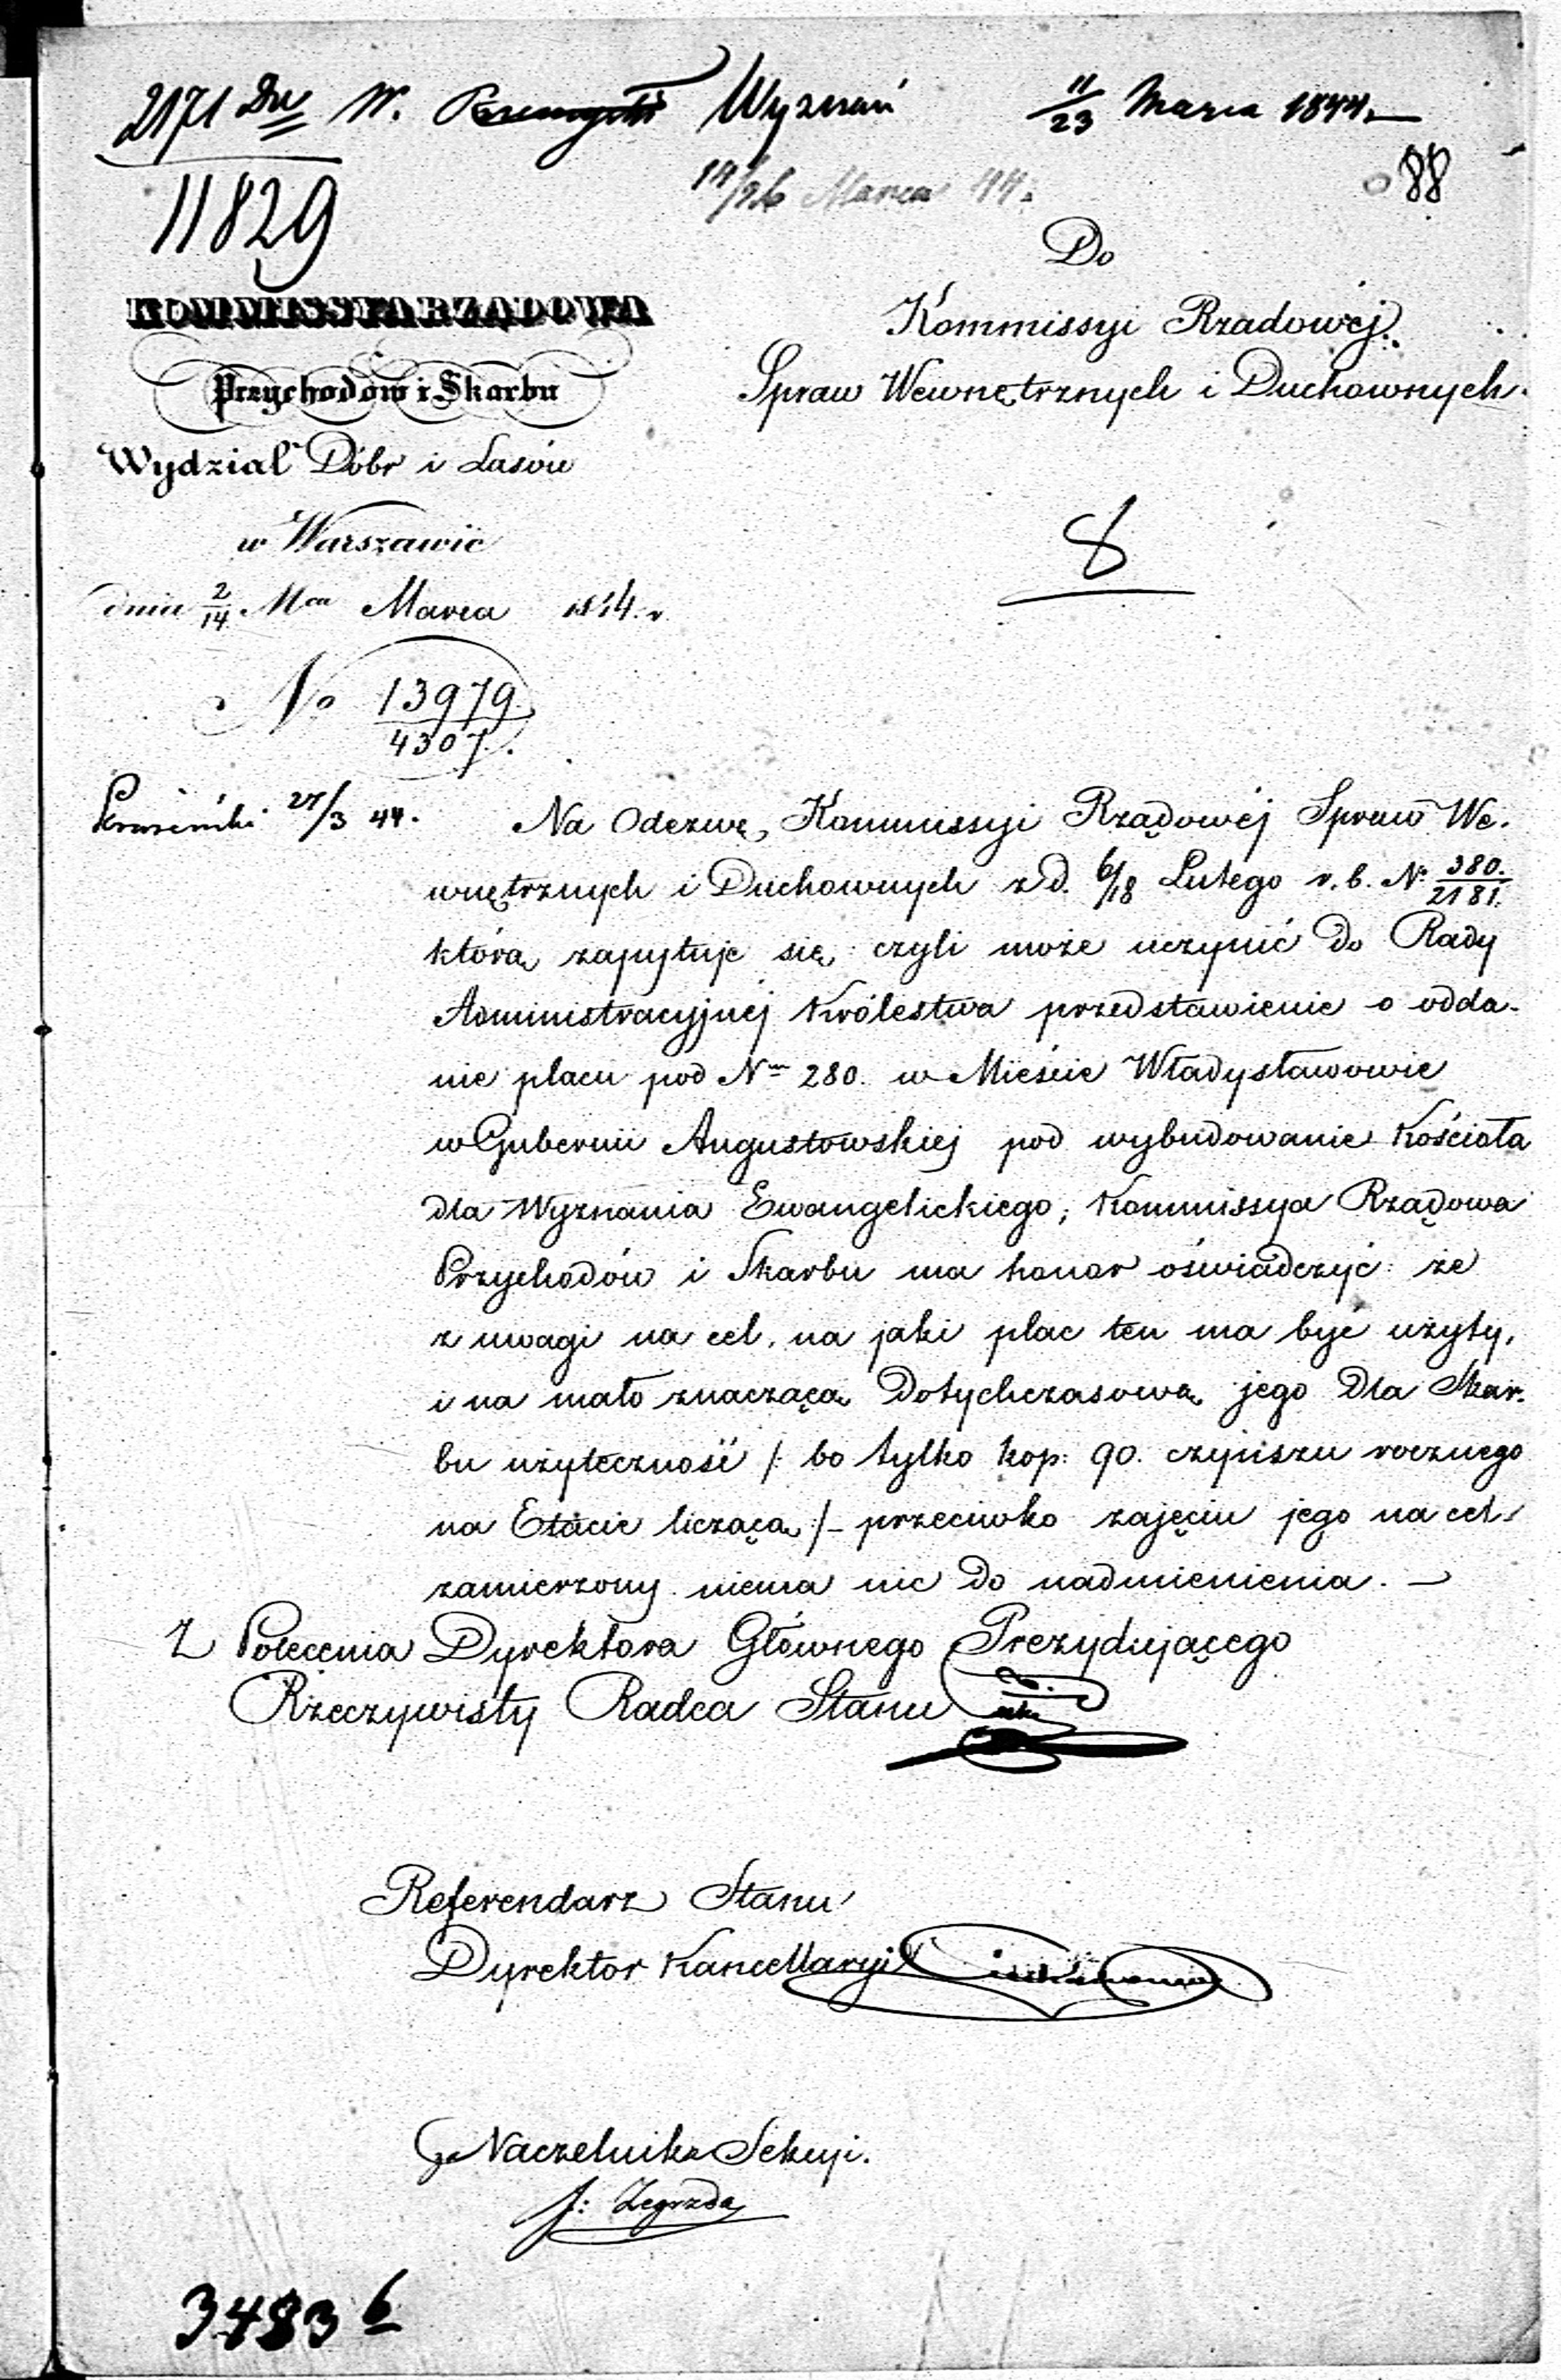 2171 W. Wyznań 11/23 Marca 1844.
14/26 Marca 44.
88
11829
KOMMISSYA RZĄDOWA
Przychodów i Skarbu
Wydział Dóbr i Lasów
w Warszawie
dnia 2/14 Mca Marca 1844. r.
No 13979
4307.
Do
Kommissyi Rządowéj
Spraw Wewnętrznych i Duchownych.
8
27/3 44.
Na Odezwę Kommissyi Rządowéj Spraw We-
wnętrznych i Duchownych z d. 6/18 Lutego r. b. N. 380./2181.
którą zapytuje się czyli może uczynić do Rady
Administracyjnéj Królestwa przedstawienie o odda-
nie placu pod Nm 280. w Mieście Władysławowie
w Gubernii Augustowskiej pod wybudowanie Kościoła
dla Wyznania Ewangelickiego, Kommissya Rządowa
Przychodów i Skarbu ma honor oświadczyć: że
z uwagi na cel, na jaki plac ten ma być użyty,
i na mało znaczącą dotychczasową jego dla Skar-
bu użyteczność /: bo tylko kop: 90. czynszu rocznego
na Etacie liczącą :/ – przeciwko zajęciu jego na cel
zamierzony niema nic do nadmienienia. –
Z Polecenia Dyrektora Głównego Prezydującego
Rzeczywisty Radca Stanu
Referendarz Stanu
Dyrektor Kancellaryi
za Naczelnika Sekcyi.
J: Zegrzda
3483 b